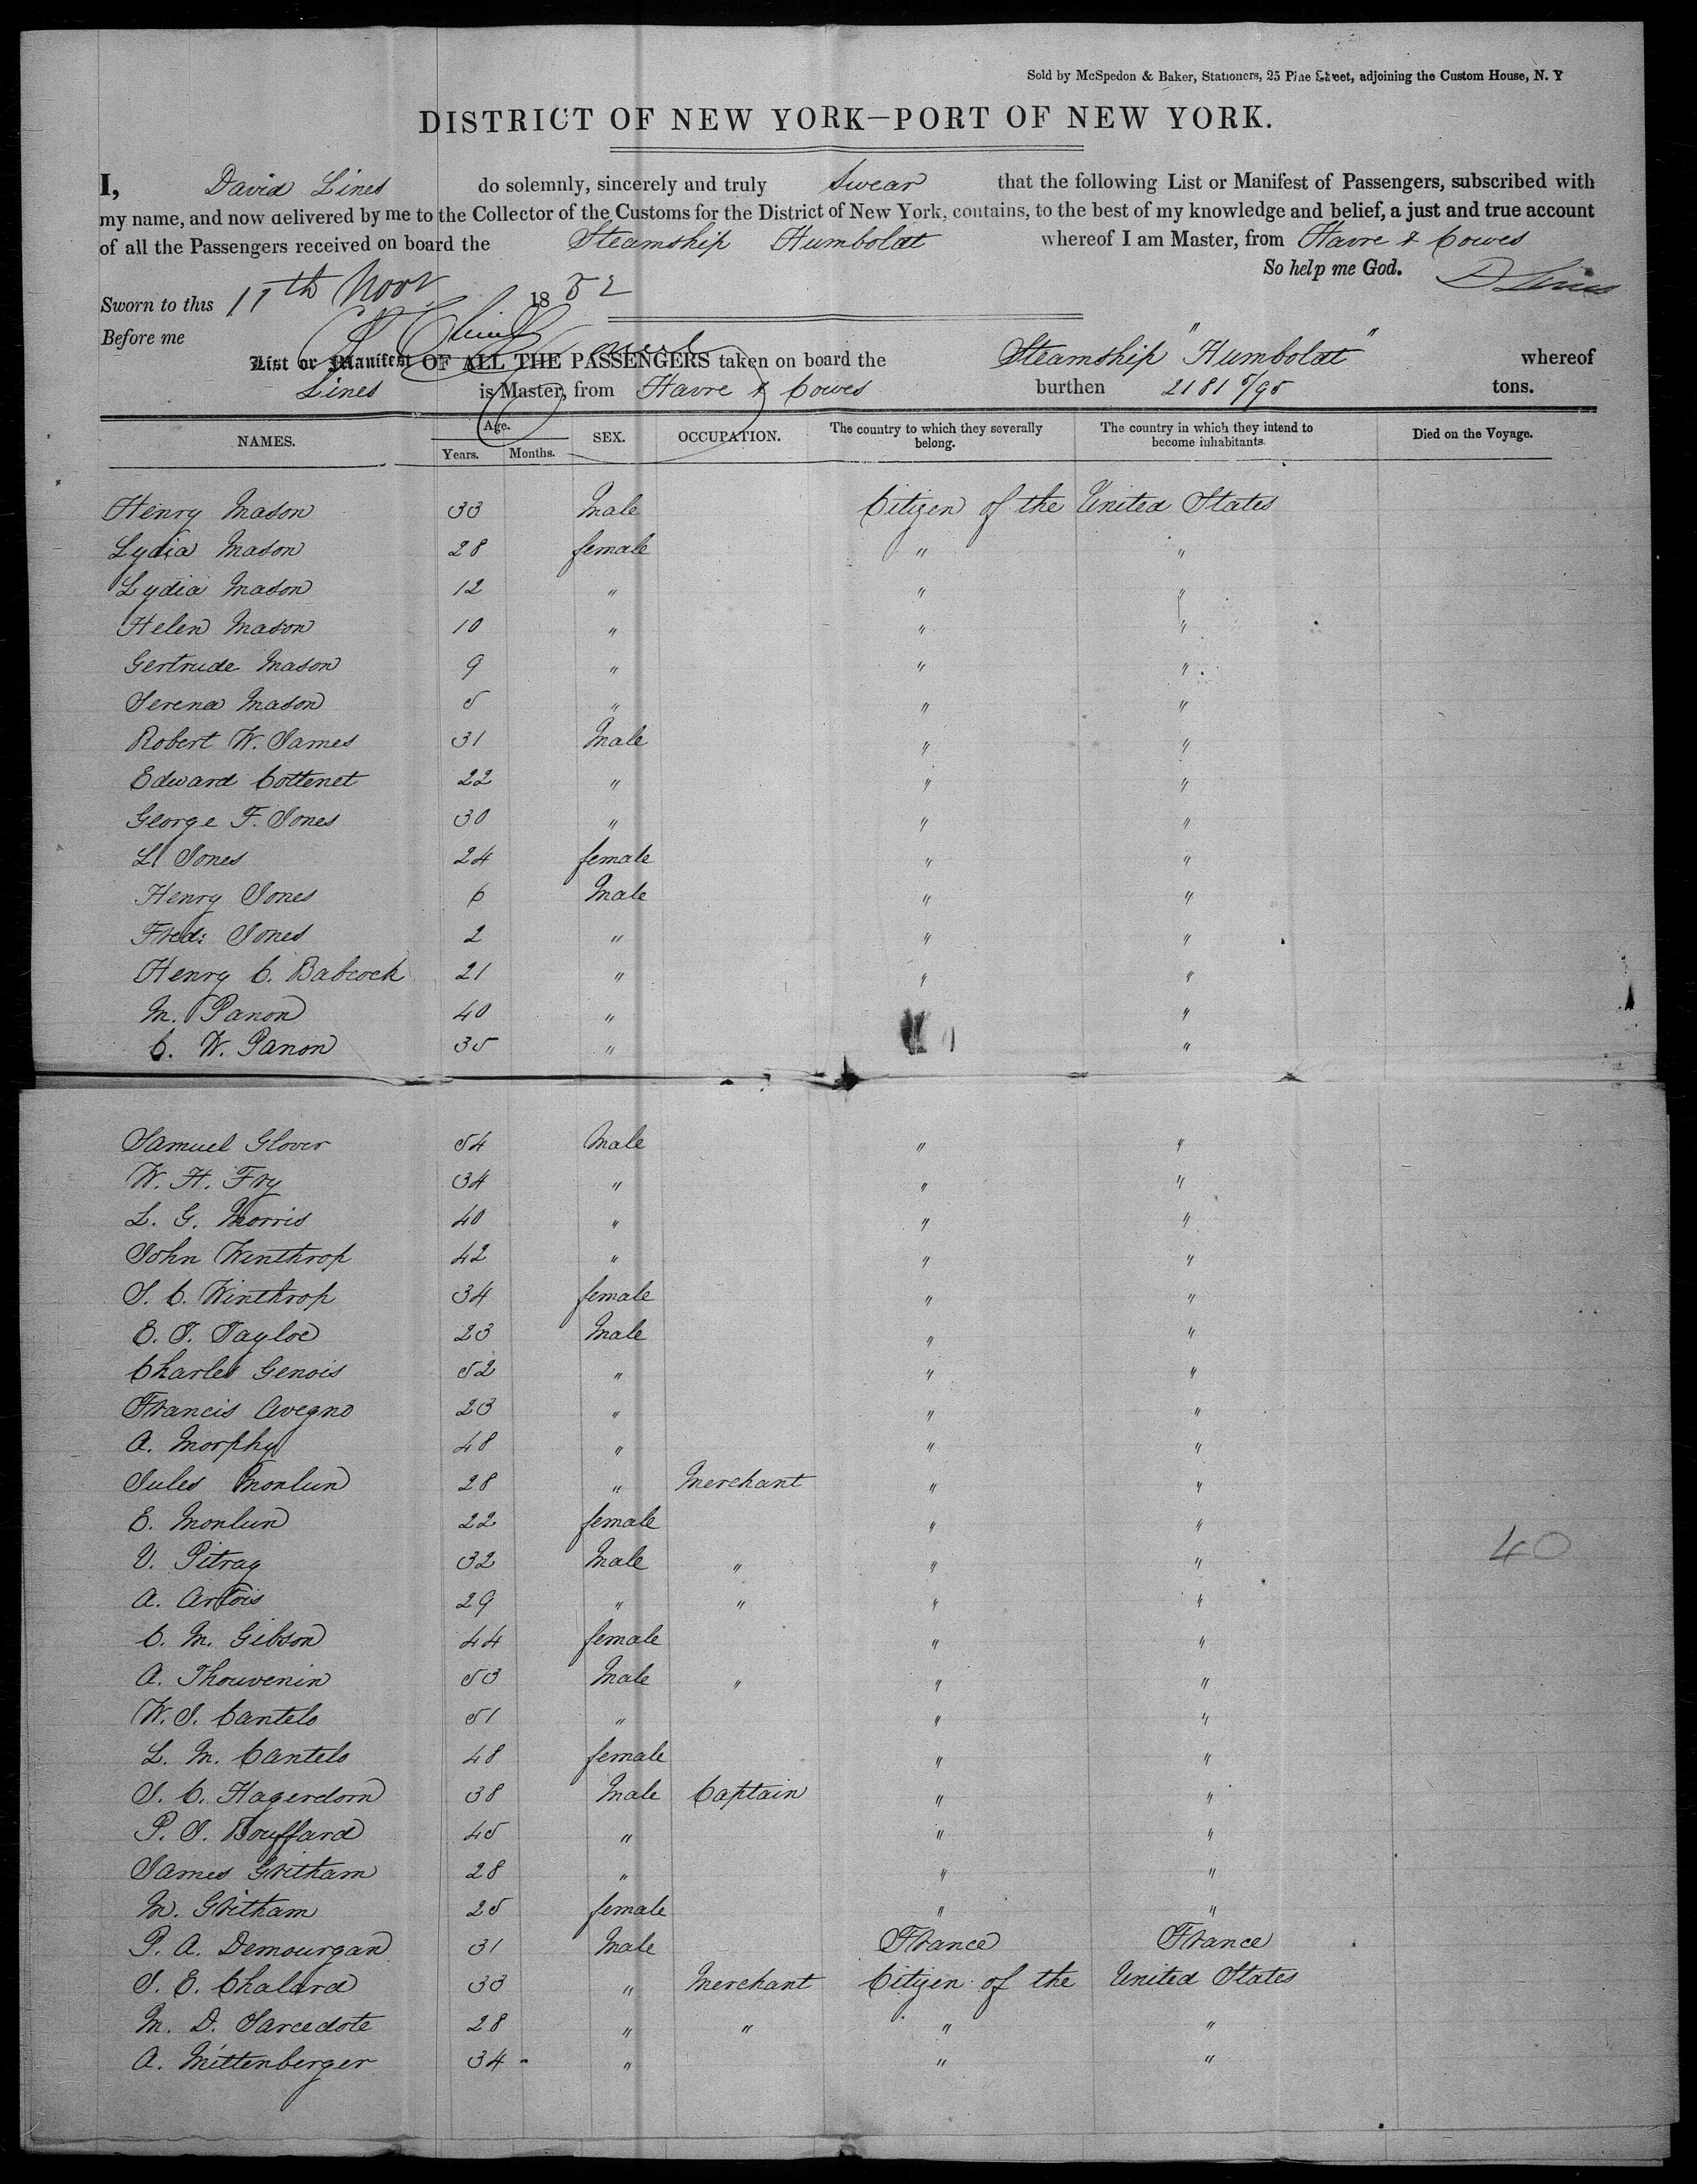 Sold by McSpedon & Baker, Stationers, 25 Pine Street, adjoining the Custom House, N. Y
DISTRICT OF NEW YORK—PORT OF NEW YORK.
I, David Lines do solemnly, sincerely and truly swear that the following List or Manifest of Passengers, subscribed with
my name, and now delivered by me to the Collector of the Customs for the District of New York, contains, to the best of my knowledge and belief, a just and true account
of all the Passengers received on board the Steamship Humboldt whereof I am Master, from Havre & Cowes
So help me God. D Lines
Sworn to this 11th Novr 1852
Before me
List or Manifest OF ALL THE PASSENGERS taken on board the Steamship "Humboldt" whereof
Lines is Master, from Havre & Cowes burthen 2181 5/95 tons.
NAMES. Age. Years. Months. SEX. OCCUPATION. The country to which they severally belong. The country in which they intend to become inhabitants. Died on the Voyage.
Henry Mason 33 Male Citizen of the United States
Lydia Mason 28 female " "
Lydia Mason 12 " " "
Helen Mason 10 " " "
Gertrude Mason 9 " " "
Serena Mason 5 " " "
Robert W. James 31 Male " "
Edward Cottenet 22 " " "
George F. Jones 30 " " "
L. Jones 24 female " "
Henry Jones 6 Male " "
Fred: Jones 2 " " "
Henry C. Babcock 21 " " "
M. Panon 40 " "
C. W. Panon 35 " " "
Samuel Glover 54 Male " "
W. H. Fry 34 " " "
L. G. Morris 40 " " "
John Winthrop 42 " " "
S. C. Winthrop 34 female " "
E. T. Tayloe 23 Male " "
Charles Genois 52 " " "
Francis Avegno 23 " " "
A. Morphy 48 " " "
Jules Monlun 28 " Merchant " "
E. Monlun 22 female " "
V. Pitray 32 Male " " "
40
A. Artois 29 " " " "
C. M. Gibson 44 female " "
A. Thouvenin 53 Male " " "
W. J. Cantelo 51 " " "
L. M. Cantelo 48 female " "
J. C. Hagerdorn 38 Male Captain " "
P. J. Bouffard 45 " " "
James Gritham 28 " " "
M. Gritham 25 female " "
P. A. Demourgan 31 Male France France
J. E. Chalard 33 " Merchant Citizen of the United States
M. D. Sarcedote 28 " " " "
A. Mittenberger 34 " " "